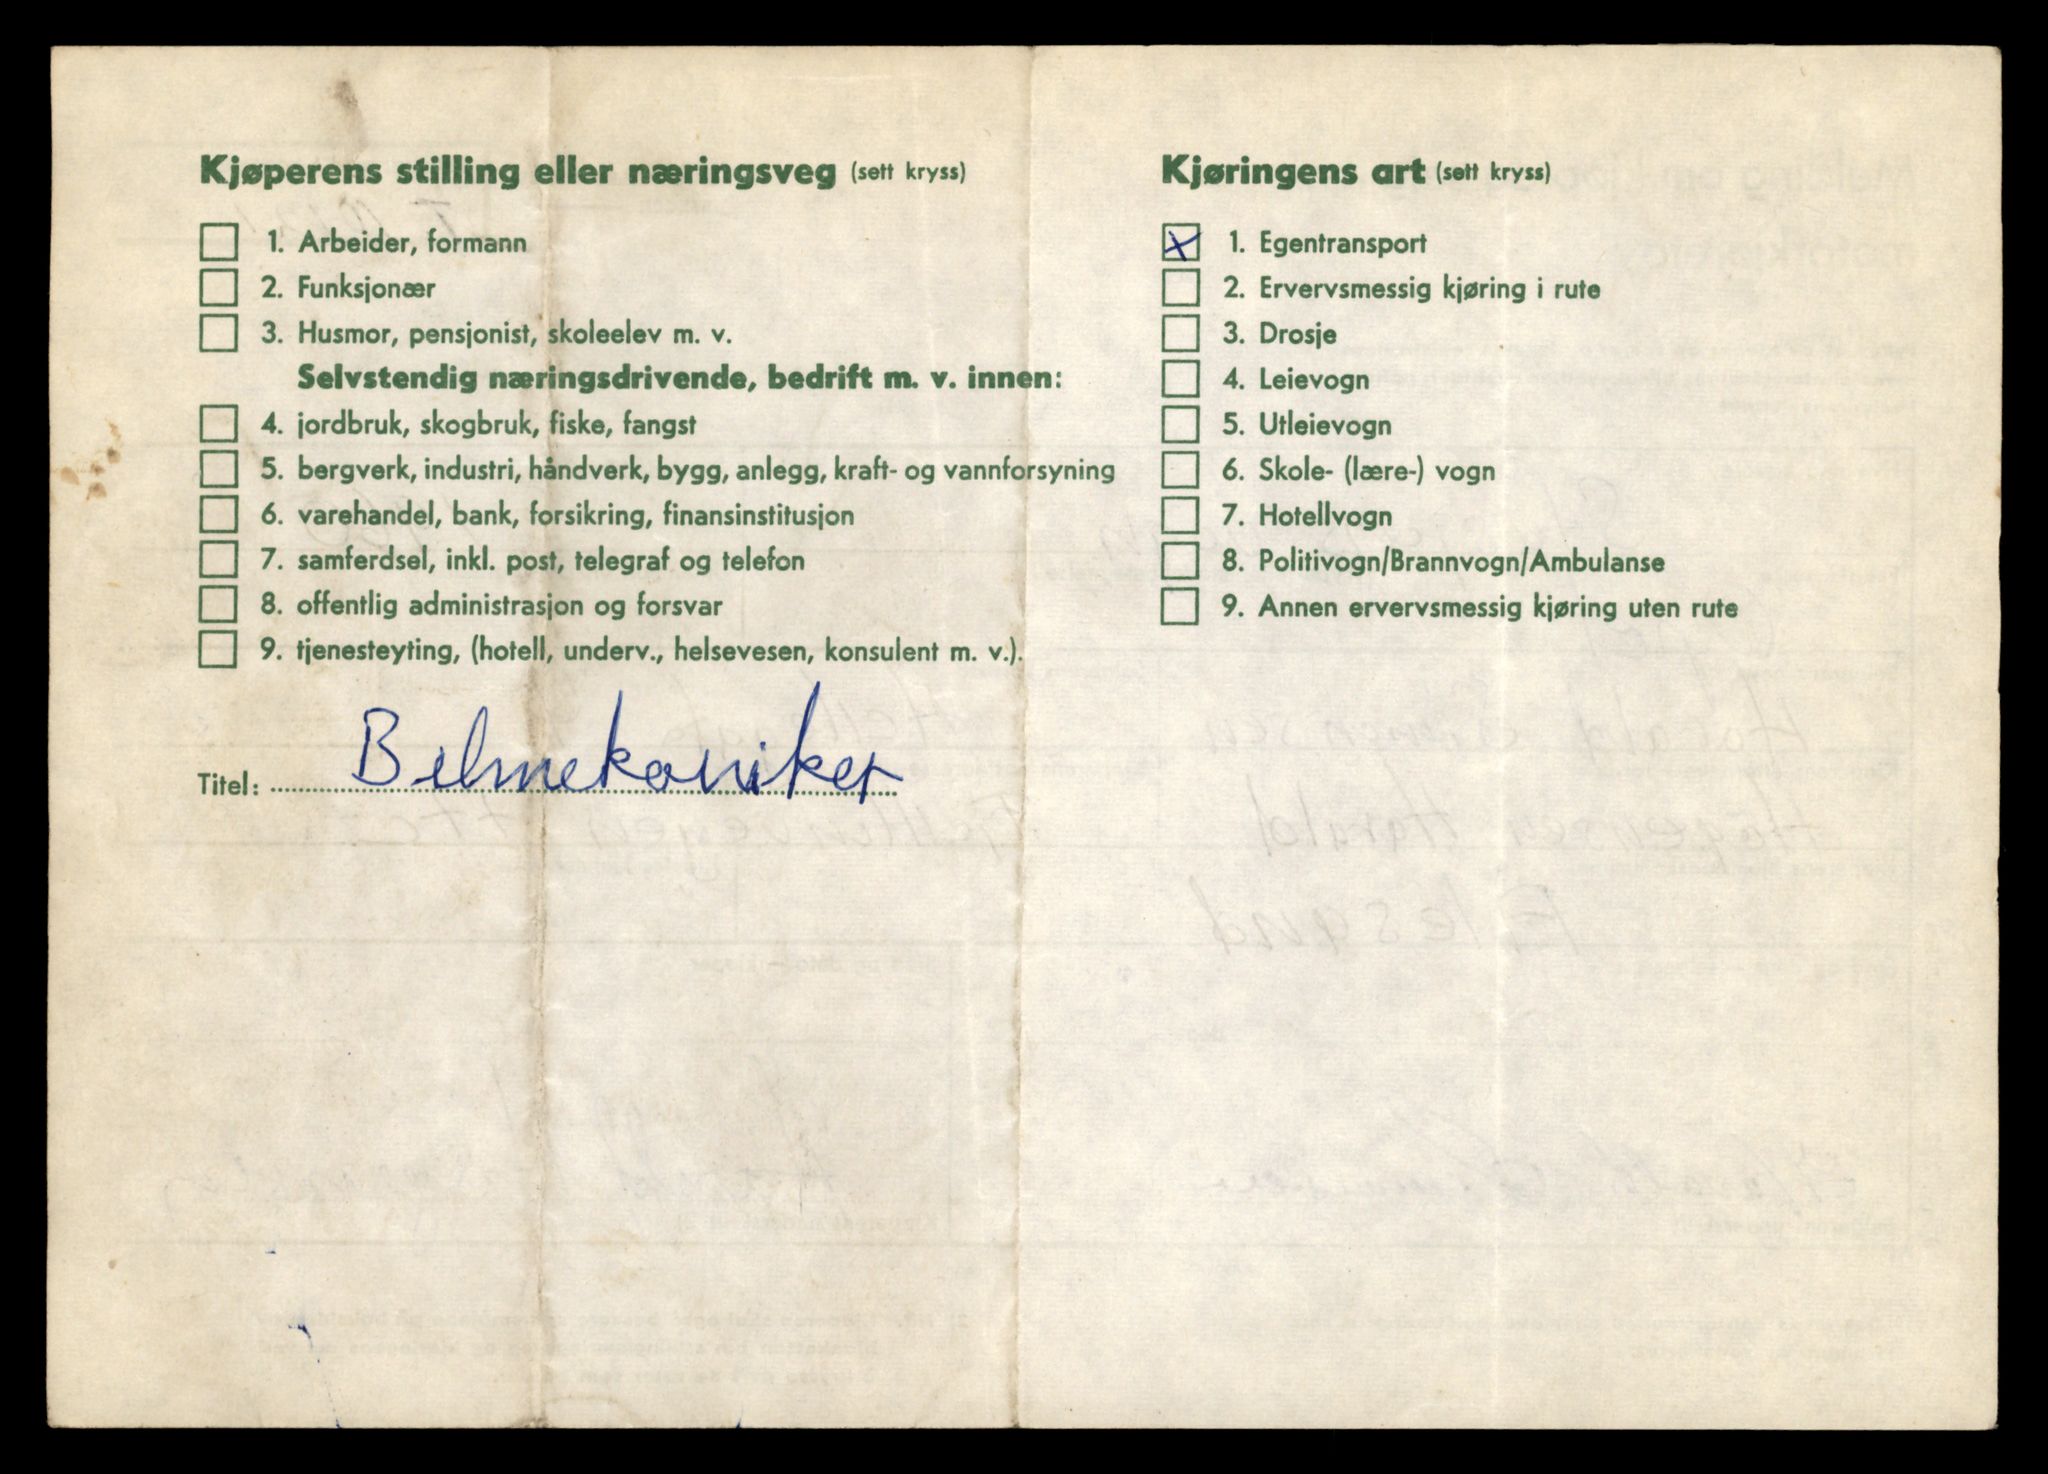 Kjøperens stilling eller næringsveg (sett kryss)
1. Arbeider, formann
2. Funksjonær
3. Husmor, pensjonist, skoleelev m. v.
Selvstendig næringsdrivende, bedrift m. v. innen:
4. jordbruk, skogbruk, fiske, fangst
5. bergverk, industri, håndverk, bygg, anlegg, kraft- og vannforsyning
6. varehandel, bank, forsikring, finansinstitusjon
7. samferdsel, inkl. post, telegraf og telefon
8. offentlig administrasjon og forsvar
9. tjenesteyting, (hotell, underv., helsevesen, konsulent m. v.).
Titel: Bilmekaniker
Kjøringens art (sett kryss)
x 1. Egentransport
2. Ervervsmessig kjøring i rute
3. Drosje
4. Leievogn
5. Utleievogn
6. Skole- (lære-) vogn
7. Hotellvogn
8. Politivogn/Brannvogn/Ambulanse
9. Annen ervervsmessig kjøring uten rute